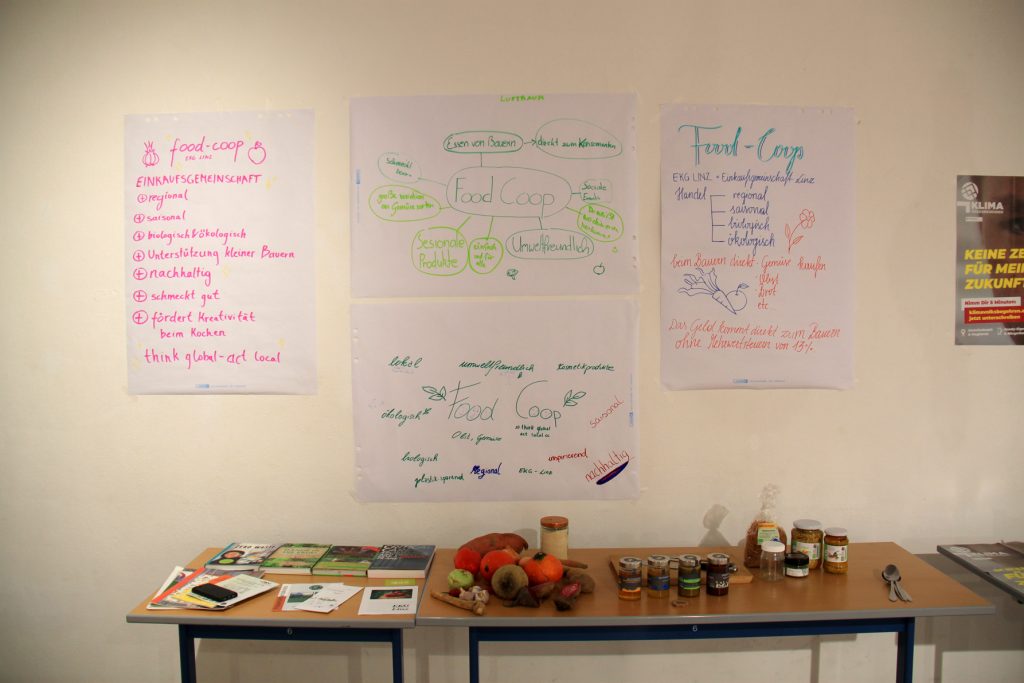 food-coop
EKG LINZ
EINKAUFSGEMEINSCHAFT
⊕ regional
⊕ saisonal
⊕ biologisch & ökologisch
⊕ Unterstützung kleiner Bauern
⊕ nachhaltig
⊕ schmeckt gut
⊕ fördert Kreativität
beim Kochen
think global - act local
LUFTRAUM
Essen von Bauern
direkt zum Konsumenten
Food Coop
große
an Gemüse sorten
Soziale
Sesionale
Produkte
einfach
Umwelfreundlich
lokal
umweltfreundlich
Kosmetikprodukte
ökologisch
Food Coop
saisonal
Obst, Gemüse
think global
act local
biologisch
inspirierend
Regional
EKG - Linz
nachhaltig
Food-Coop
EKG LINZ = Einkaufsgemeinschaft Linz
Handel
regional
saisonal
biologisch
ökologisch
beim Bauern direkt Gemüse kaufen
Obst
Brot
etc
Das Geld kommt direkt zum Bauern
ohne Mehrwertsteuern von 13%.
KLIMA
KEINE ZE
FÜR MEIN
ZUKUNFT
Nimm Dir 5 Minuten:
klimavolksbegehren.a
jetzt unterschreiben
6
6